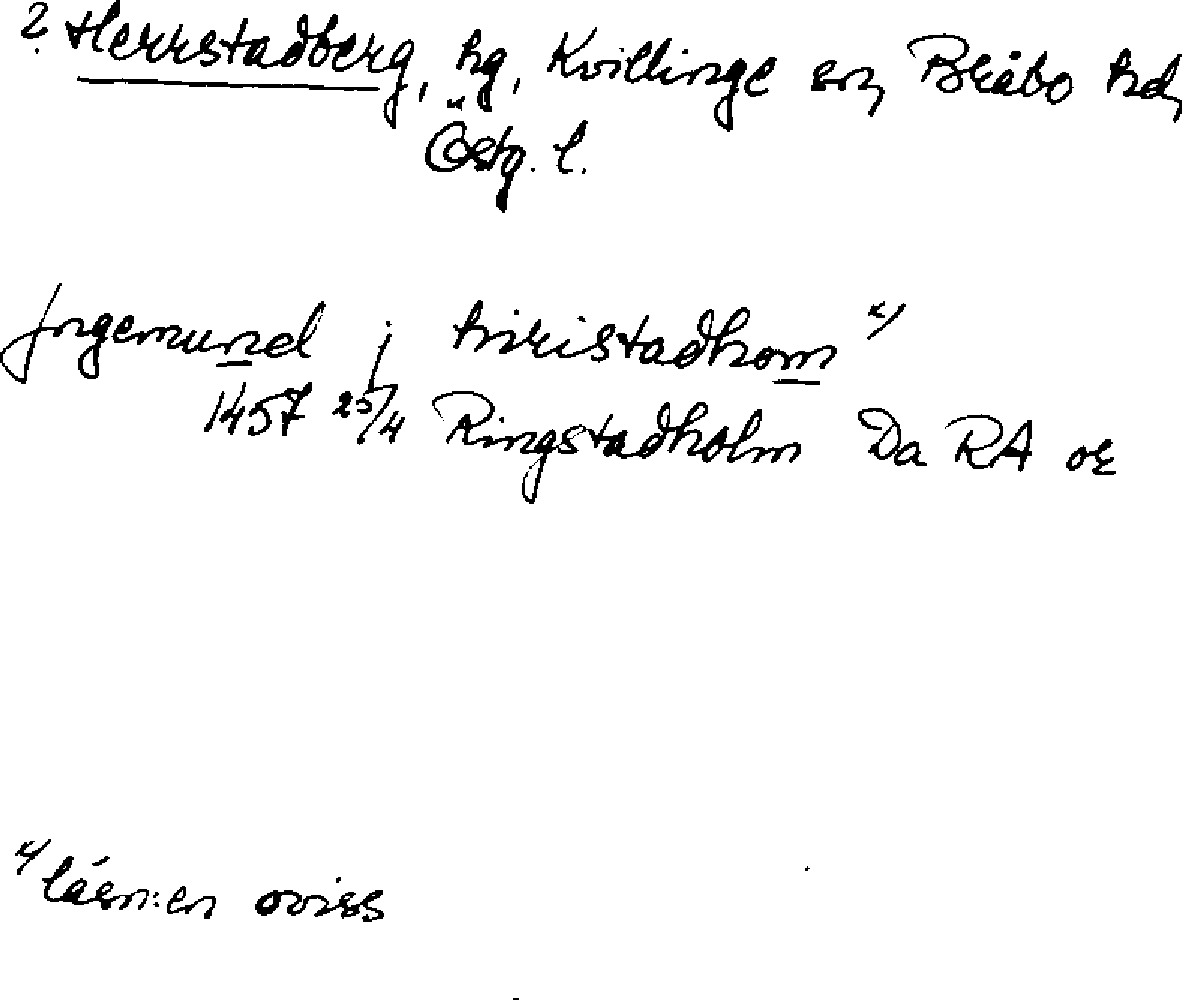 ? Herrstadberg, hg, Kvillinge sn, Bråbo hd,
Östg. l.
Jngemund j hiristadhom x)
1457 25/4 Ringstadholm Da RA or
x) läsn:en oviss